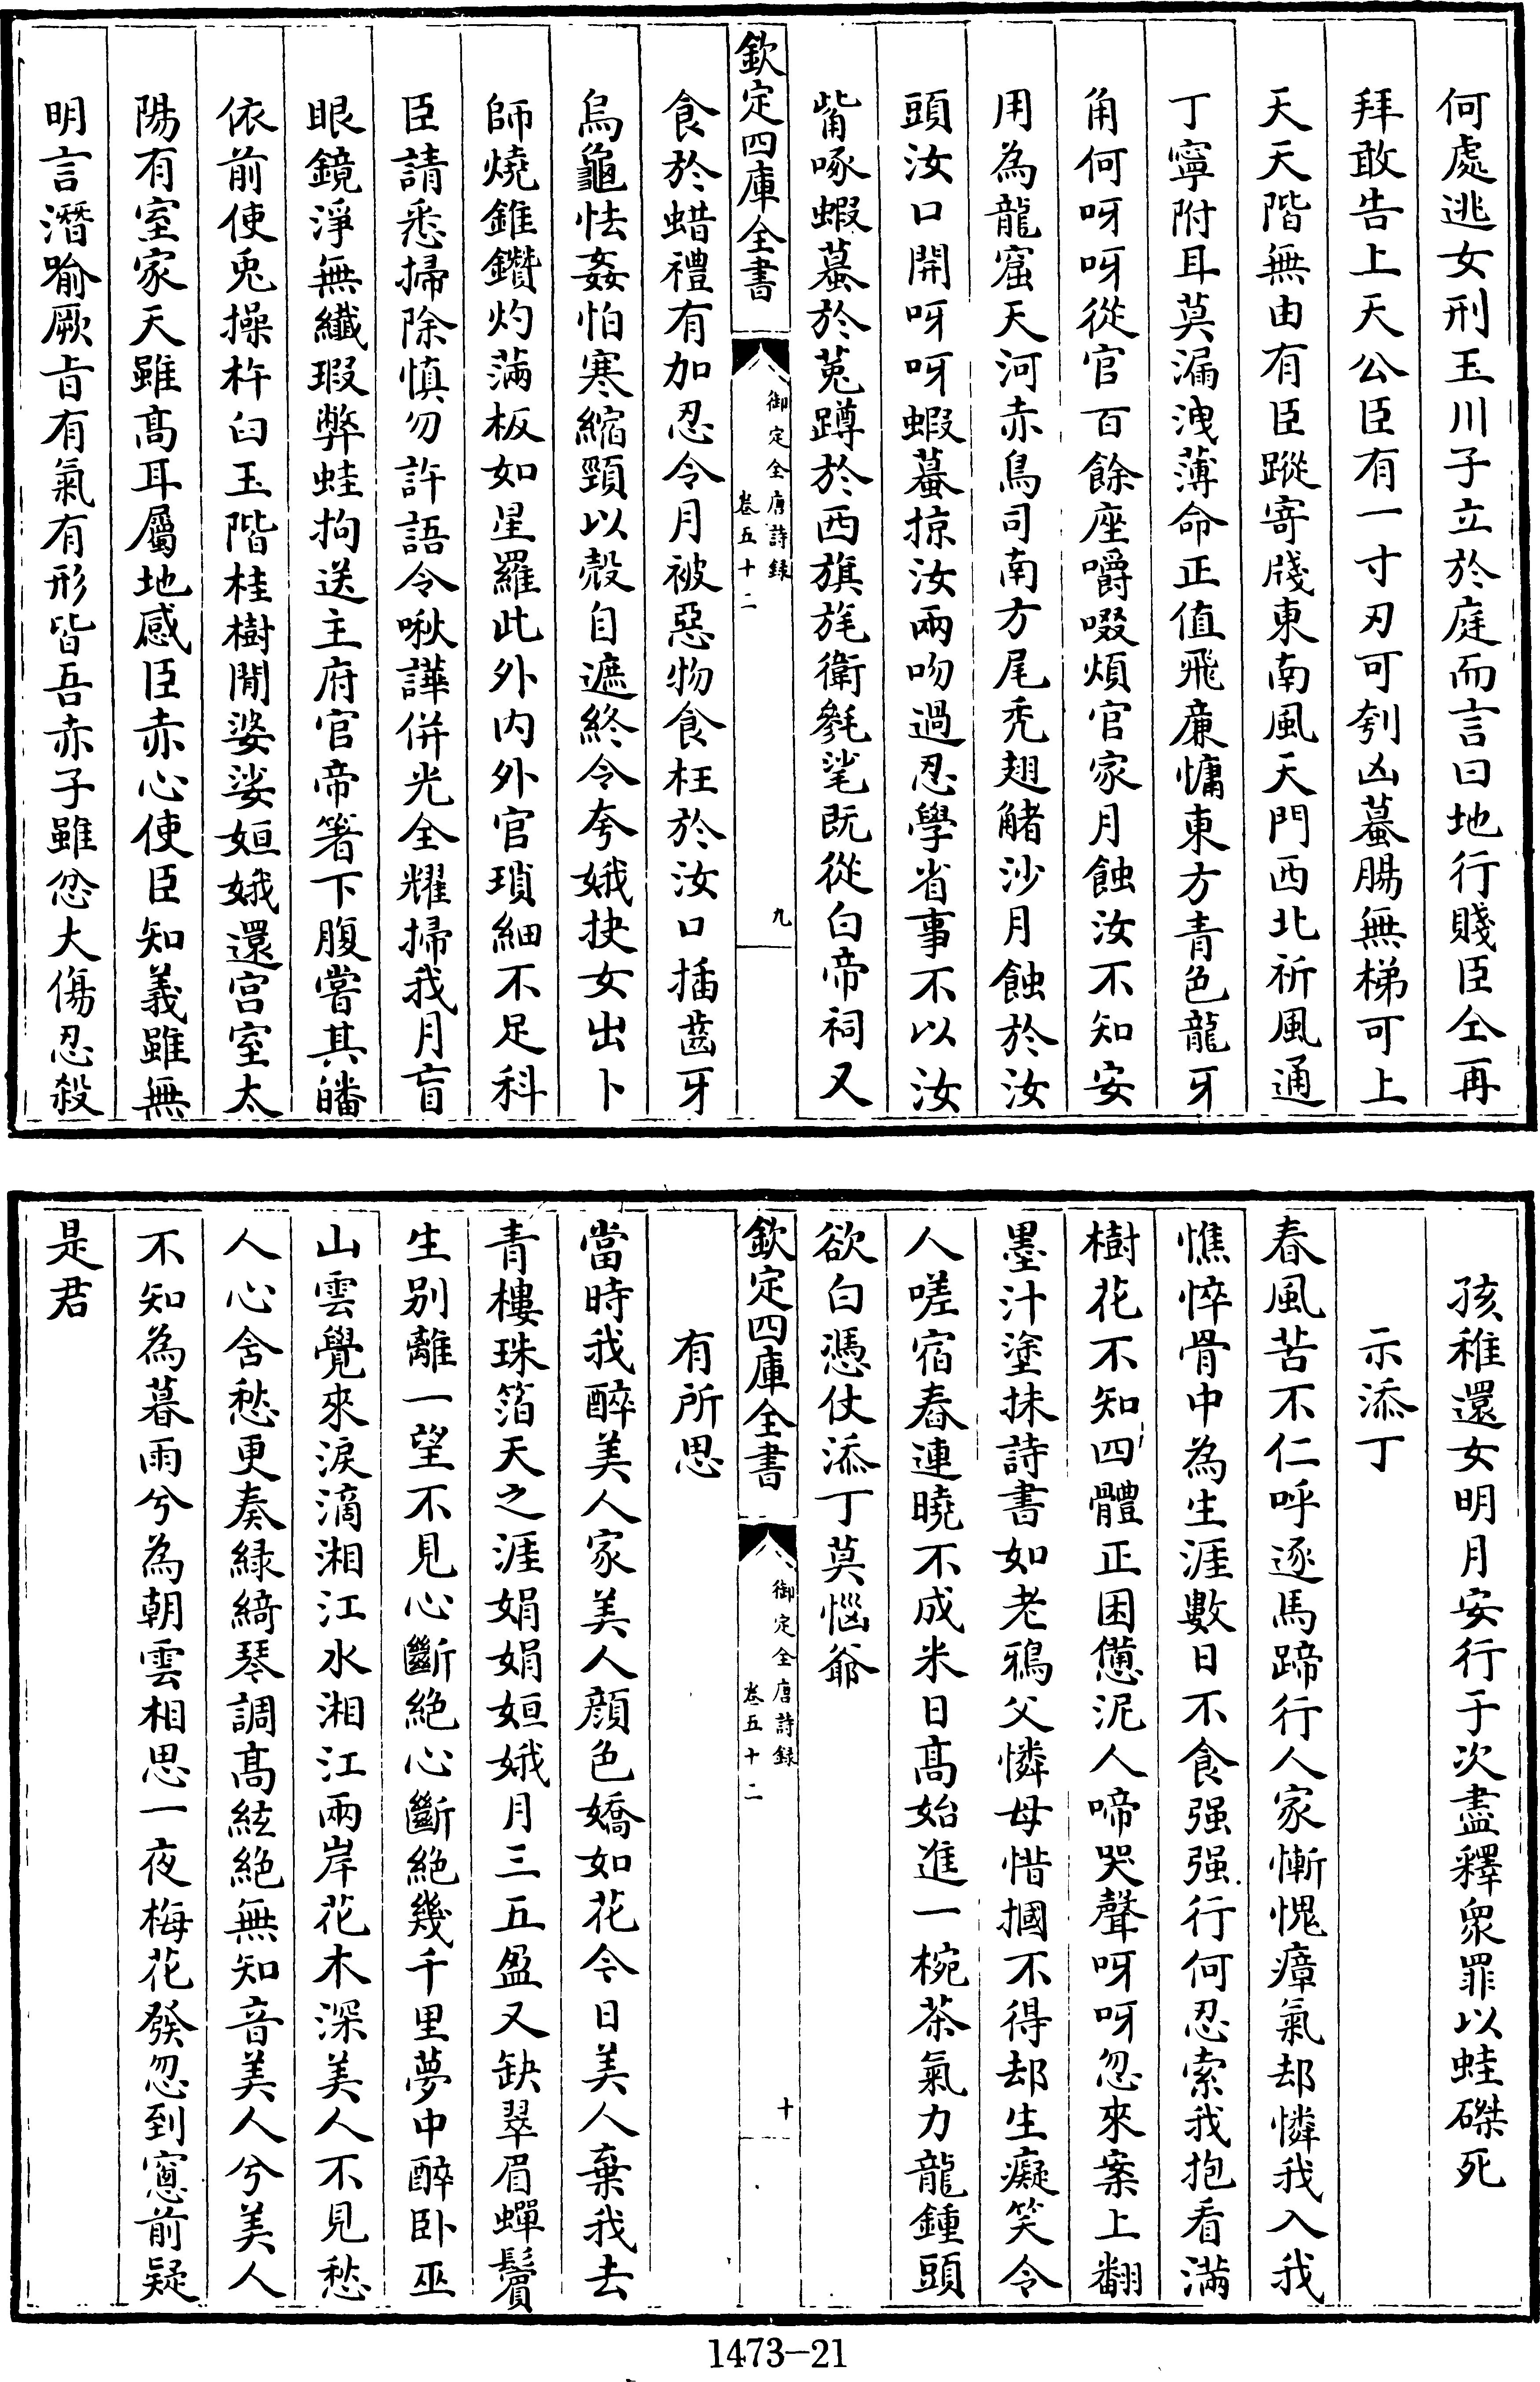 何處逃女刑玉川子立於庭而言曰地行賤臣仝再
拜敢告上天公臣有一寸刃可刳凶蟇腸無梯可上
天天階無由有臣蹤寄牋東南風天門西北祈風通
丁寧附耳莫漏洩薄命正值飛廉慵東方青色龍牙
角何呀呀從官百餘座嚼啜煩官家月蝕汝不知安
用為龍窟天河赤鳥司南方尾禿翅觰沙月蝕於汝
頭汝口開呀呀蝦蟇掠汝兩吻過忍學省事不以汝
觜啄蝦蟇於菟蹲於西旗旄衛毿毟既從白帝祠又
欽定四庫全書
御定全唐詩録
卷五十二
九
食於蜡禮有加忍令月被惡物食枉於汝口插齒牙
烏龜怯姦怕寒縮頸以殼自遮終令夸娥抉女出卜
師燒錐鑽灼滿板如星羅此外内外官瑣細不足科
臣請悉掃除慎勿許語令啾譁併光全耀掃我月盲
眼鏡淨無纖瑕弊蛙拘送主府官帝箸下腹嘗其皤
依前使兎操杵臼玉階桂樹閒婆娑姮娥還宫室太
陽有室家天雖髙耳屬地感臣赤心使臣知義雖無
明言潛喻厥㫖有氣有形皆吾赤子雖忿大傷忍殺
孩稚還女明月安行于次盡釋衆罪以蛙磔死
示添丁
春風苦不仁呼逐馬蹄行人家慚愧瘴氣却憐我入我
憔悴骨中為生涯數日不食强强行何忍索我抱看滿
樹花不知四體正困憊泥人啼哭聲呀呀忽來案上翻
墨汁塗抹詩書如老鴉父憐母惜摑不得却生癡笑令
人嗟宿舂連曉不成米日髙始進一椀茶氣力龍鍾頭
欲白憑仗添丁莫惱爺
欽定四庫全書
御定全唐詩録
卷五十二
十
有所思
當時我醉美人家美人顔色嬌如花今日美人棄我去
青樓珠箔天之涯娟娟姮娥月三五盈又缺翠眉蟬鬢
生别離一望不見心斷絶心斷絶幾千里夢中醉卧巫
山雲覺來淚滴湘江水湘江兩岸花木深美人不見愁
人心含愁更奏緑綺琴調髙絃絶無知音美人兮美人
不知為暮雨兮為朝雲相思一夜梅花發忽到窻前疑
是君
1473-21